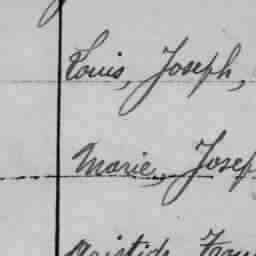 Louis, Joseph,
Marie, Josep
Aristide Fran